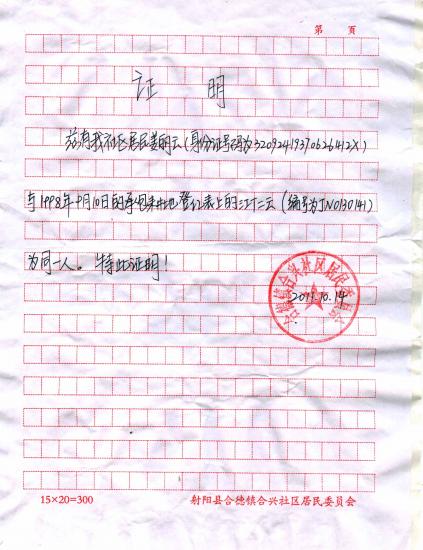 第 页
证 明
兹有我社区居民姜的云(身份证号码为32092419370626412X)
与1998年9月10日的承包耕地登记表上的江云(编号为JN0130141)
为同一人。特此证明!
合德镇合兴社区居民委员会
2011.10.14
15×20=300
射阳县合德镇合兴社区居民委员会